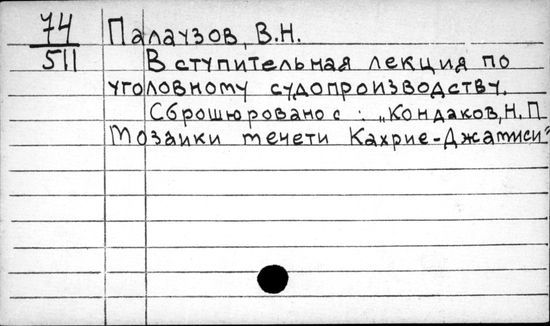 74 Палаузов, В.Н.
511 Вступительная лекция по
уголовному судопроизводству.
Сброшюровано с: „Кондаков, Н.П.
Мозаики мечети Кахрие-Джамиси"